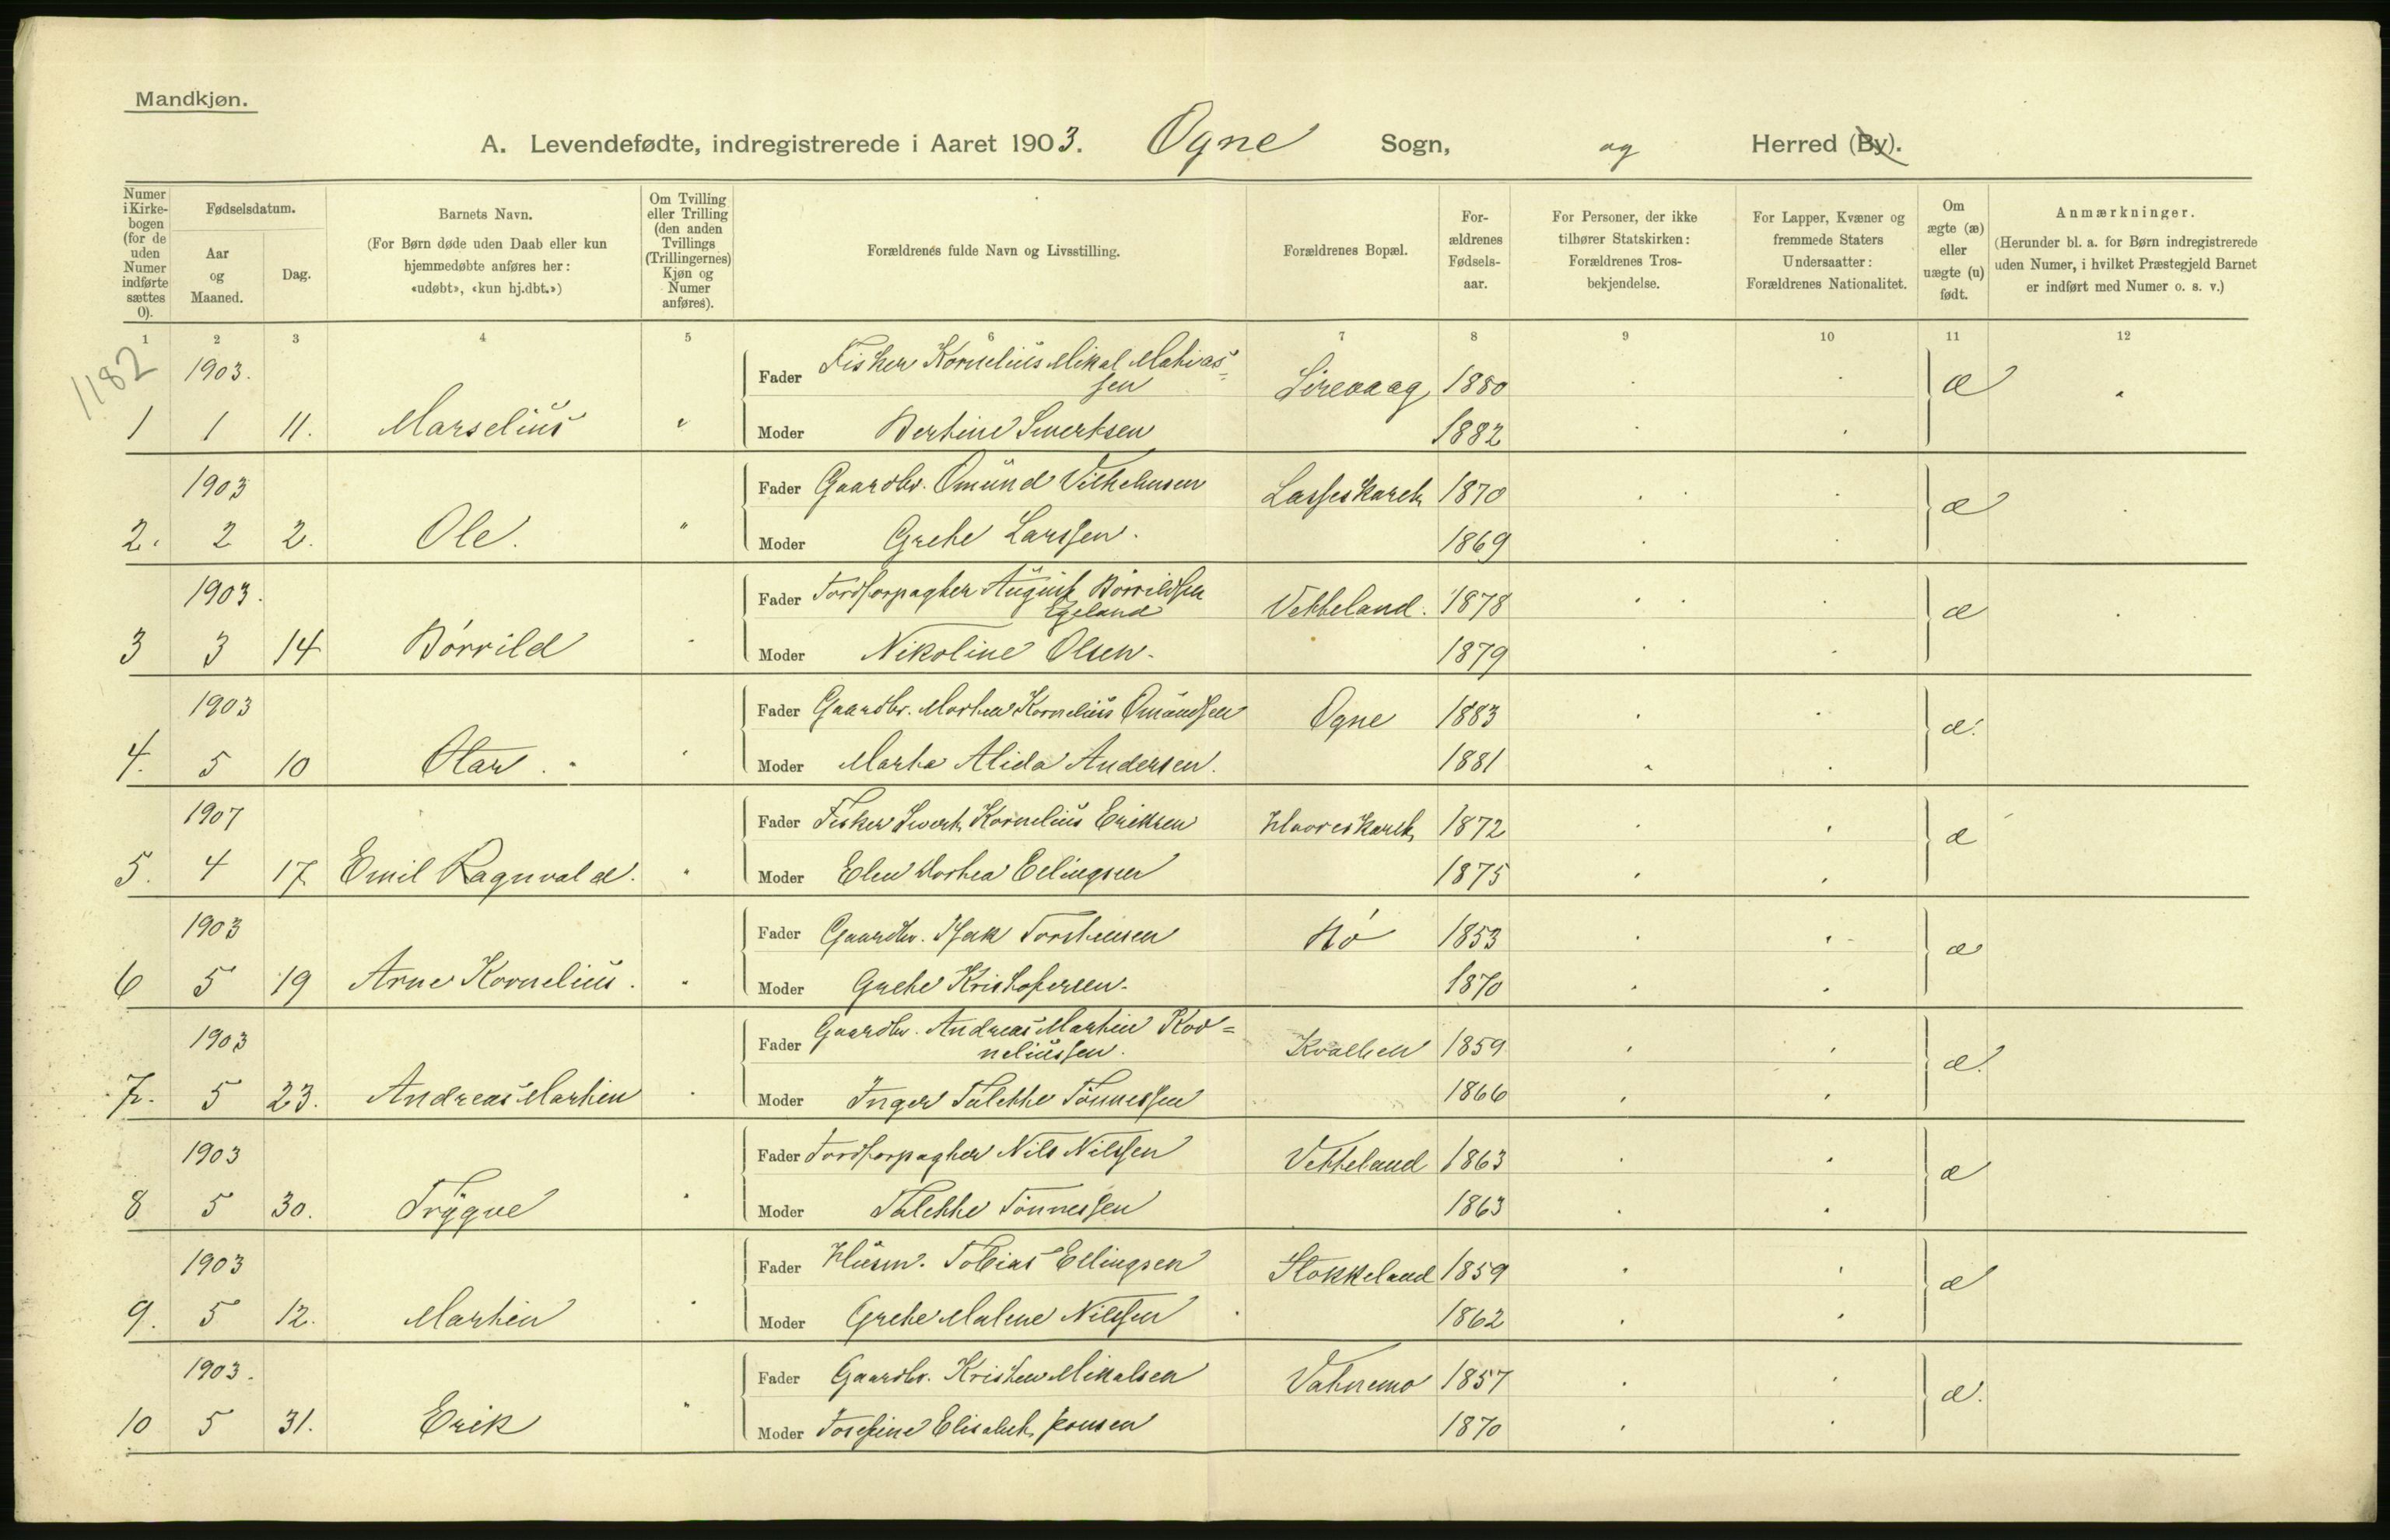 Mandkjøn.
A. Levendefødte, indregistrerede i Aaret 1903. Ogne Sogn, og Herred (By).
Numer i Kirkebogen (for de uden Numer indførte sættes 0).
Fødselsdatum.
Aar og Maaned.
Dag.
Barnets Navn.
(For Børn døde uden Daab eller kun hjemmedøbte anføres her: «udøbt», «kun hj.dbt.»)
Om Tvilling eller Trilling (den anden Tvillings (Trillingernes) Kjøn og Numer anføres).
Forældrenes fulde Navn og Livsstilling.
Forældrenes Bopæl.
Forældrenes Fødselsaar.
For Personer, der ikke tilhører Statskirken: Forældrenes Trosbekjendelse.
For Lapper, Kvæner og fremmede Staters Undersaatter: Forældrenes Nationalitet.
Om ægte (æ) eller uægte (u) født.
Anmærkninger.
(Herunder bl. a. for Børn indregistrerede uden Numer, i hvilket Præstegjeld Barnet er indført med Numer o. s. v.)
1 2 3 4 5 6 7 8 9 10 11 12
1182
1903. Fader Fisker Kornelius Mikal Mathias=
sen Sirevaag 1880 æ
1 1 11. Marselius " Moder Bertine Sivertsen 1882
1903 Fader Gaardbr. Omund Vilhelmsen Lasseskareth 1870 æ
2. 2 2. Ole. " Moder Grete Larssen. 1869
1903. Fader Jordforpagter August Börrildsen
Egeland Vetteland. 1878 æ
3 3 14 Börrild Moder Nikoline Olsen. 1879
1903 Fader Gaardbr. Morten Kornelius Omundsen Ogne 1883 æ.
4. 5 10 Otar. Moder Marta Alida Andersen. 1881
1907 Fader Fisker Sivert Kornelius Eriksen 1872 æ
5. 4 17 Emil Ragnvald. " Moder Elen Dorthea Erlingsen 1875
1903 Fader Gaardbr. Isak Torstensen Bö 1853 æ
6 5 19 Arne Kornelius. " Moder Grete Kristofersen. 1870
1903 Fader Gaardbr. Andreas Martin Kor=
neliussen. Kvalben 1859 æ.
7. 5 23. Andreas Martin Moder Inger Talette Tönnessen 1866
1903 Fader Jordforpagter Nils Nilssen Vetteland 1863 æ
8 5 30. Trygve Moder Talette Tönnessen 1863
1903 Fader Husm. Tobias Ellingsen Stokkeland 1859 æ
9. 5 12. Martin Moder Grete Malene Nilssen 1862
1903. Fader Gaardbr. Kristen Mikalsen Vatnemo 1857 æ.
10 5 31. Erik " Moder Josefine Elisabeth Jonsen 1870